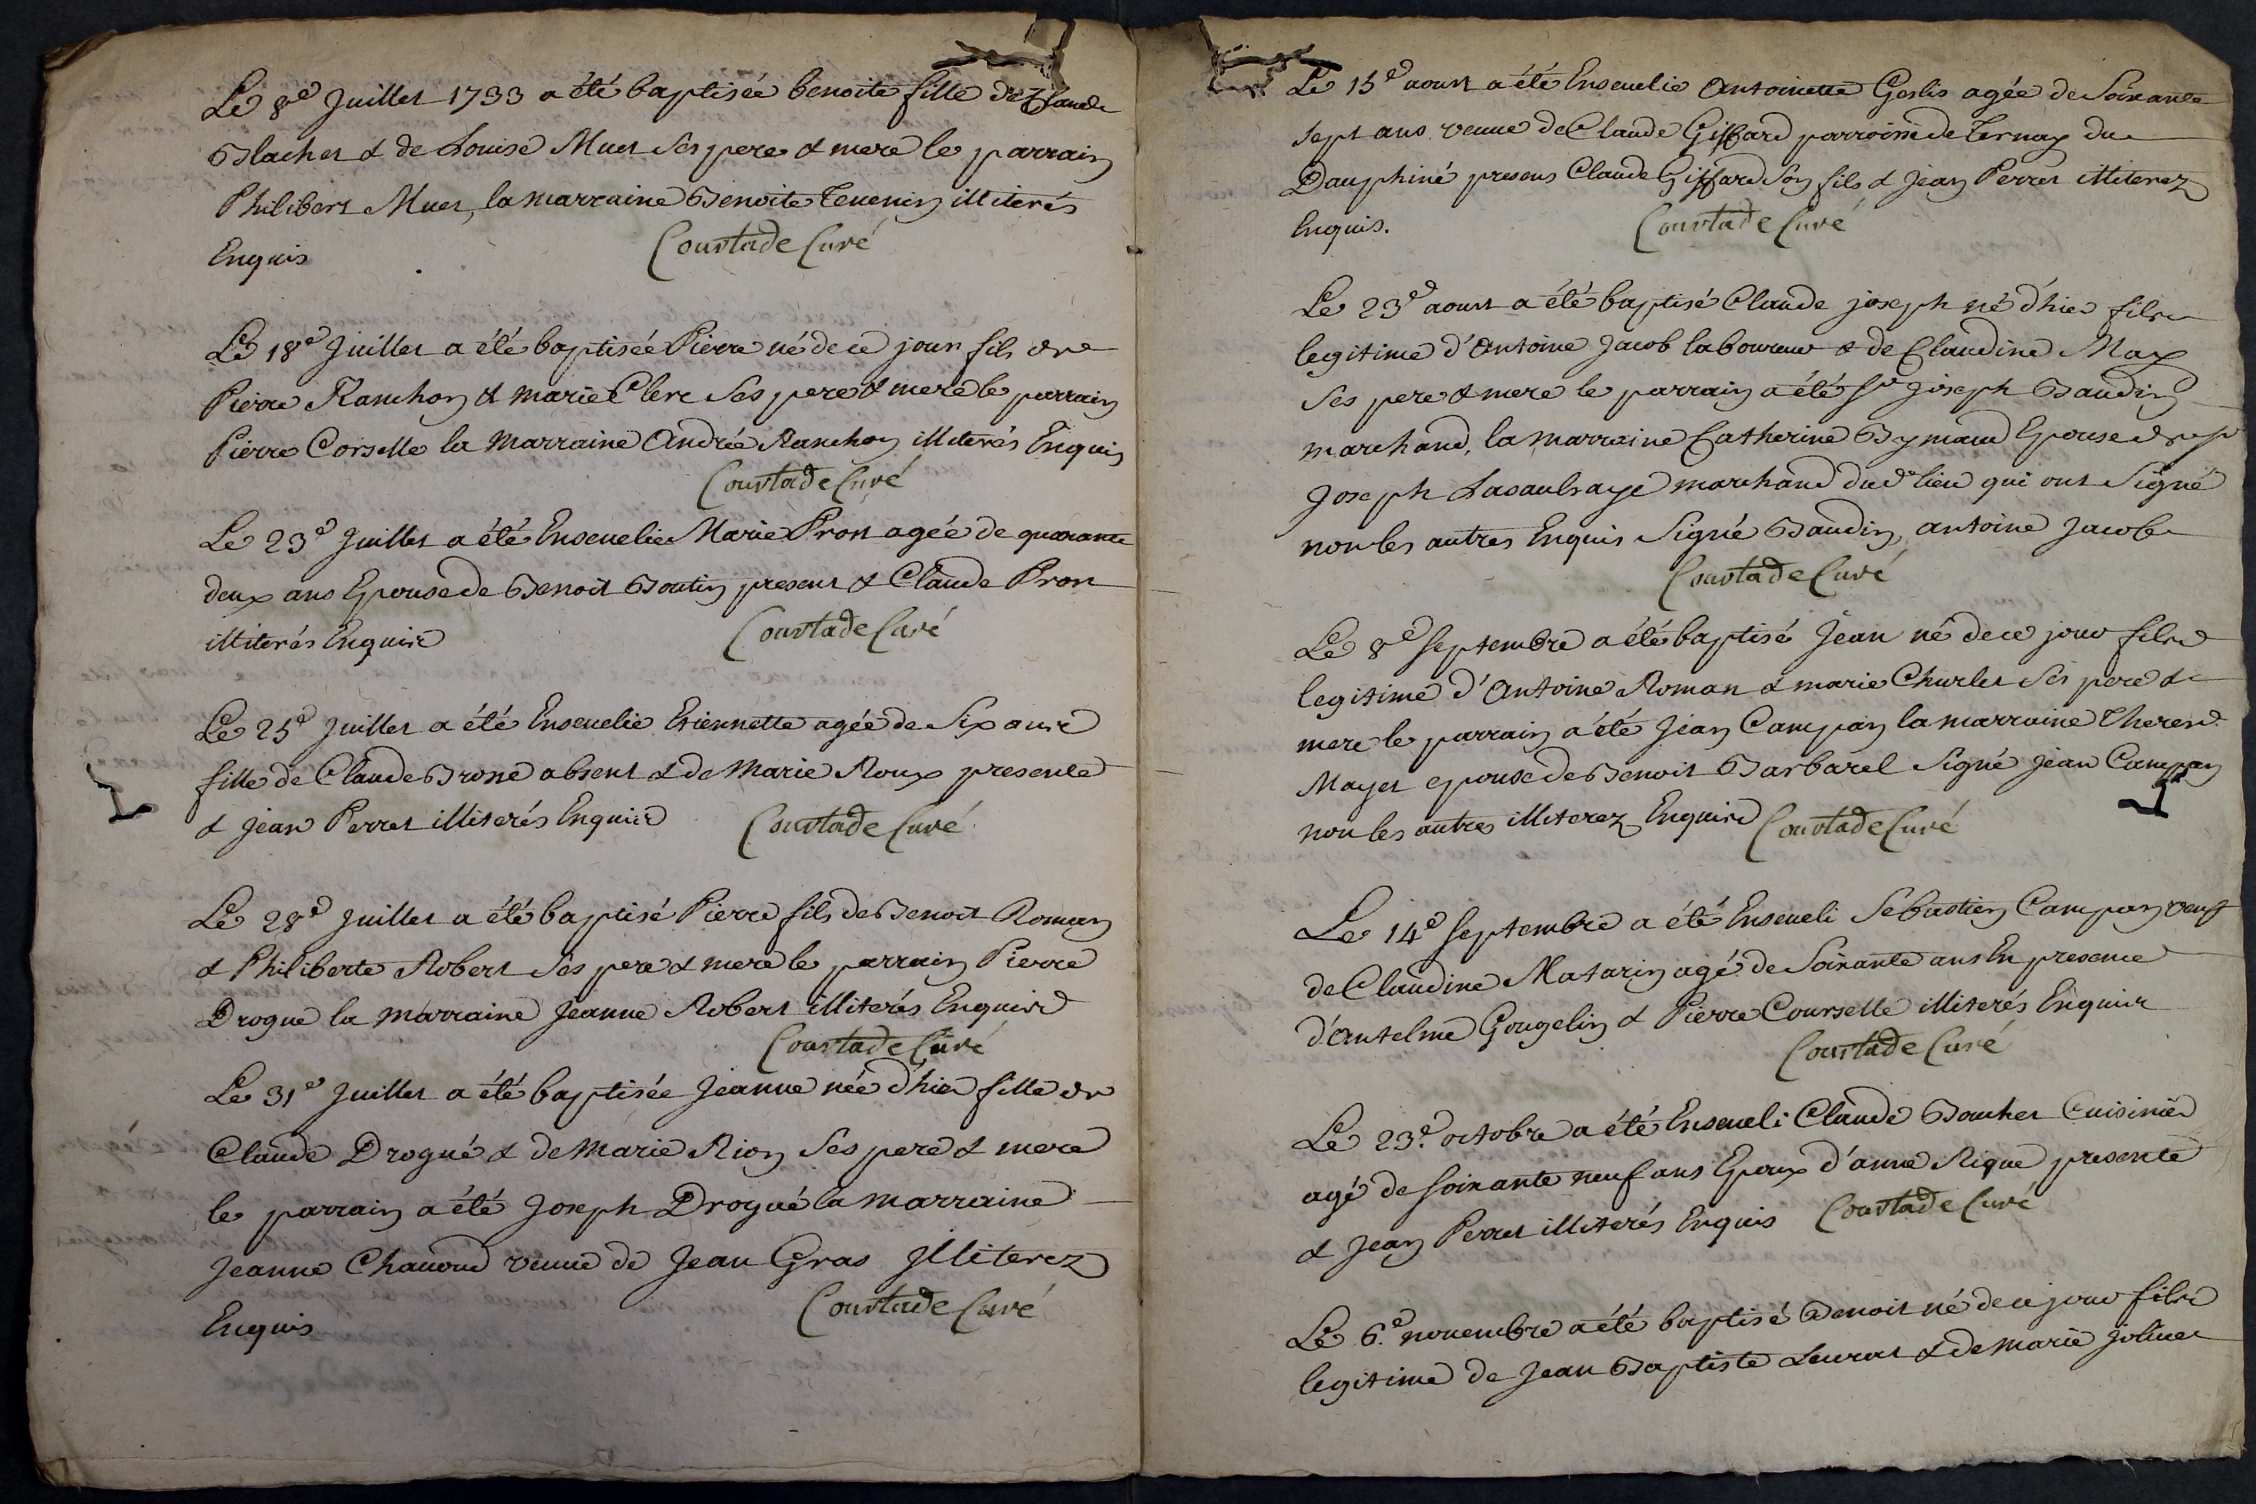 Le 8e Juillet 1733 a été baptisée benoite fille de Claude
Blachet & de Louise Muet Ses pere & mere le parrain
Philibert Muet, la marraine Benoite Tevenin illiterés
Enquis Courtade Curé
Le 18e Juillet a été baptisée Pierre né de ce jour fils de
Pierre Ranchon & marie Clerc Ses pere & mere le parrain
Pierre Corselle la Marraine Andrée Ranchon illiterés Enquis
Courtade Curé
Le 23e Juillet a été Ensevelie Marie Pron agée de quarante
deux ans Epouse de Benoit Boutin present & Claude Pron
illiterés Enquis Courtade Curé
Le 25e Juillet a été Ensevelie Etiennette agée de Six ans
fille de Claude Brone absent & de Marie Roux presente
& Jean Perret illiterés Enquis Courtade Curé
Le 28e Juillet a été baptisé Pierre fils de Benoit Roman
& Philiberte Robert Ses pere & mere le parrain Pierre
Drogue la marraine Jeanne Robert illiterés Enquis
Courtade Curé
Le 31e Juillet a été baptisée Jeanne née d'hier fille de
Claude Drogué & de Marie Rion Ses pere & mere
le parrain a été Joseph Drogué la marraine
Jeanne Chavond veuve de Jean Gras Illiterez
Enquis Courtade Curé
Le 15e aoust a été Ensevelie Antoinette Geslis agée de Soixante
sept ans veuve de Claude Giffard parroisse de Ternay du
Dauphiné presens Claude Giffard Son fils & Jean Perret illiterez
Enquis. Courtade Curé
Le 23e aoust a été baptisé Claude joseph né d'hier fils
legitime d'Antoine Jacob laboureur & de Claudine May
Ses pere & mere le parrain a été Sr Joseph Baudin
marchand, la marraine Catherine Bymand Epouse de Sr
Joseph Lasaulsaye marchand dud. lieu qui ont Signé
non les autres Enquis Signé Baudin, antoine Jacob
Courtade Curé
Le 8e Septembre a été baptisé Jean né de ce jour fils
legitime d'Antoine Roman & marie Churlet Ses pere &
mere le parrain a été Jean Campan la marraine Therese
Mayet epouse de Benoit Barbarel Signé Jean Campan
non les autres illiterez Enquis Courtade Curé
Le 14e Septembre a été Enseveli Sebastien Campan veuf
de Claudine Matarin agé de Soixante ans En presence
d'Antelme Gougelin & Pierre Courselle illiterés Enquis
Courtade Curé
Le 23e. octobre a été Enseveli Claude Bouchet Cuisinier
agé de soixante neuf ans Epoux d'anne Rique presente
& Jean Perret illiterés Enquis Courtade Curé
Le 6e. novembre a été baptisé Benoit né de ce jour fils
legitime de Jean Baptiste Leurat & de marie Jolivet